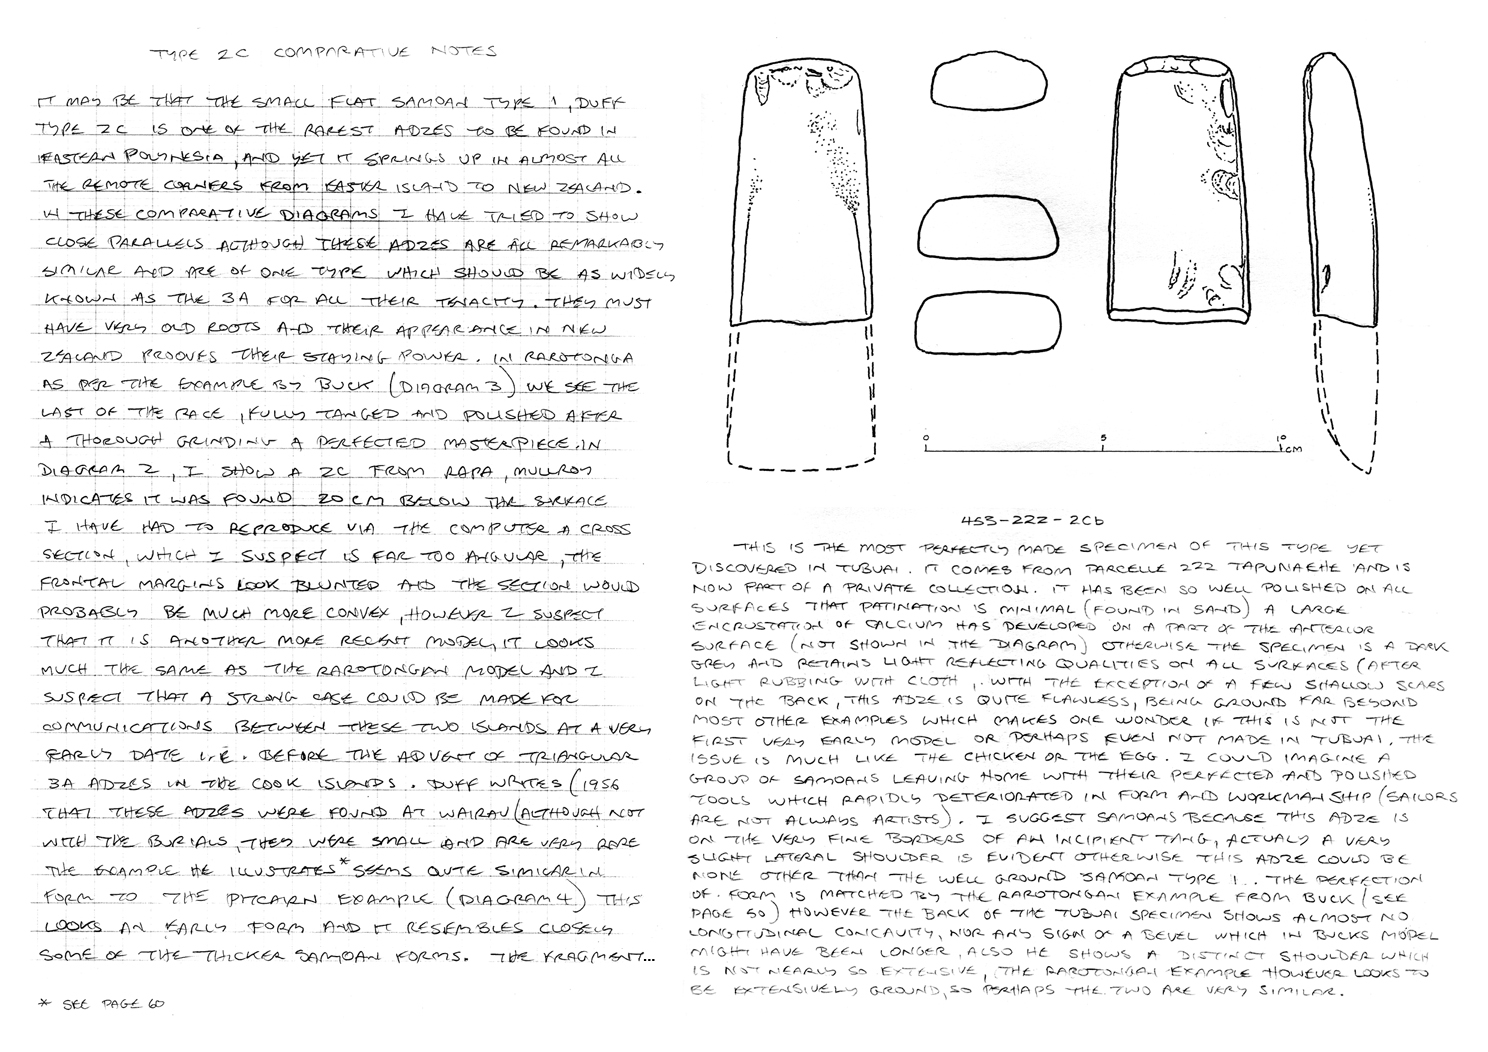 TYPE 2C COMPARATIVE NOTES
IT MAY BE THAT THE SMALL FLAT SAMOAN TYPE 1, DUFF
TYPE 2C IS ONE OF THE RAREST ADZES TO BE FOUND IN
EASTERN POLYNESIA, AND YET IT SPRINGS UP IN ALMOST ALL
THE REMOTE CORNERS FROM EASTER ISLAND TO NEW ZEALAND.
IN THESE COMPARATIVE DIAGRAMS I HAVE TRIED TO SHOW
CLOSE PARALLELS ALTHOUGH THESE ADZES ARE ALL REMARKABLY
SIMILAR AND ARE OF ONE TYPE WHICH SHOULD BE AS WIDELY
KNOWN AS THE 3A FOR ALL THEIR TENACITY. THEY MUST
HAVE VERY OLD ROOTS AND THEIR APPEARANCE IN NEW
ZEALAND PROOVES THEIR STAYING POWER. IN RAROTONGA
AS PER THE EXAMPLE BY BUCK (DIAGRAM 3) WE SEE THE
LAST OF THE RACE, FULLY TANGED AND POLISHED AFTER
A THOROUGH GRINDING A PERFECTED MASTERPIECE. IN
DIAGRAM 2, I SHOW A 2C FROM RAPA, MULLROY
INDICATES IT WAS FOUND 20 CM BELOW THE SURFACE
I HAVE HAD TO REPRODUCE VIA THE COMPUTER A CROSS
SECTION, WHICH I SUSPECT IS FAR TOO ANGULAR, THE
FRONTAL MARGINS LOOK BLUNTED AND THE SECTION WOULD
PROBABLY BE MUCH MORE CONVEX, HOWEVER I SUSPECT
THAT IT IS ANOTHER MORE RECENT MODEL, IT LOOKS
MUCH THE SAME AS THE RAROTONGAN MODEL AND I
SUSPECT THAT A STRONG CASE COULD BE MADE FOR
COMMUNICATIONS BETWEEN THESE TWO ISLANDS AT A VERY
EARLY DATE I.E. BEFORE THE ADVENT OF TRIANGULAR
3A ADZES IN THE COOK ISLANDS. DUFF WRITES (1956
THAT THESE ADZES WERE FOUND AT WAIRAU (ALTHOUGH NOT
WITH THE BURIALS, THEY WERE SMALL AND ARE VERY RARE
THE EXAMPLE HE ILLUSTRATES* SEEMS QUTE SIMILAR IN
FORM TO THE PITCAIRN EXAMPLE (DIAGRAM 4) THIS
LOOKS AN EARLY FORM AND IT RESEMBLES CLOSELY
SOME OF THE THICKER SAMOAN FORMS. THE FRAGMENT...
* SEE PAGE 60
0 5 10 CM
453-222-2Cb
THIS IS THE MOST PERFECTLY MADE SPECIMEN OF THIS TYPE YET
DISCOVERED IN TUBUAI. IT COMES FROM PARCELLE 222 TAPUNAEHE AND IS
NOW PART OF A PRIVATE COLLECTION. IT HAS BEEN SO WELL POLISHED ON ALL
SURFACES THAT PATINATION IS MINIMAL (FOUND IN SAND) A LARGE
ENCRUSTATION OF CALCIUM HAS DEVELOPED ON A PART OF THE ANTERIOR
SURFACE (NOT SHOWN IN THE DIAGRAM) OTHERWISE THE SPECIMEN IS A DARK
GREY AND RETAINS LIGHT REFLECTING QUALITIES ON ALL SURFACES (AFTER
LIGHT RUBBING WITH CLOTH, WITH THE EXCEPTION OF A FEW SHALLOW SCARS
ON THE BACK, THIS ADZE IS QUITE FLAWLESS, BEING GROUND FAR BEYOND
MOST OTHER EXAMPLES WHICH MAKES ONE WONDER IF THIS IS NOT THE
FIRST VERY EARLY MODEL OR PERHAPS EVEN NOT MADE IN TUBUAI. THE
ISSUE IS MUCH LIKE THE CHICKEN OR THE EGG. I COULD IMAGINE A
GROUP OF SAMOANS LEAVING HOME WITH THEIR PERFECTED AND POLISHED
TOOLS WHICH RAPIDLY DETERIORATED IN FORM AND WORKMANSHIP (SAILORS
ARE NOT ALWAYS ARTISTS). I SUGGEST SAMOANS BECAUSE THIS ADZE IS
ON THE VERY FINE BORDERS OF AN INCIPIENT TANG, ACTUALY A VERY
SLIGHT LATERAL SHOULDER IS EVIDENT OTHERWISE THIS ADZE COULD BE
NONE OTHER THAN THE WELL GROUND SAMOAN TYPE 1.. THE PERFECTION
OF. FORM IS MATCHED BY THE RAROTONGAN EXAMPLE FROM BUCK (SEE
PAGE 50) HOWEVER THE BACK OF THE TUBUAI SPECIMEN SHOWS ALMOST NO
LONGITUDINAL CONCAVITY, NOR ANY SIGN OF A BEVEL WHICH IN BUCKS MODEL
MIGHT HAVE BEEN LONGER, ALSO HE SHOWS A DISTINCT SHOULDER WHICH
IS NOT NEARLY SO EXTENSIVE, THE RAROTONGAN EXAMPLE HOWEVER LOOKS TO
BE EXTENSIVELY GROUND, SO PERHAPS THE TWO ARE VERY SIMILAR.